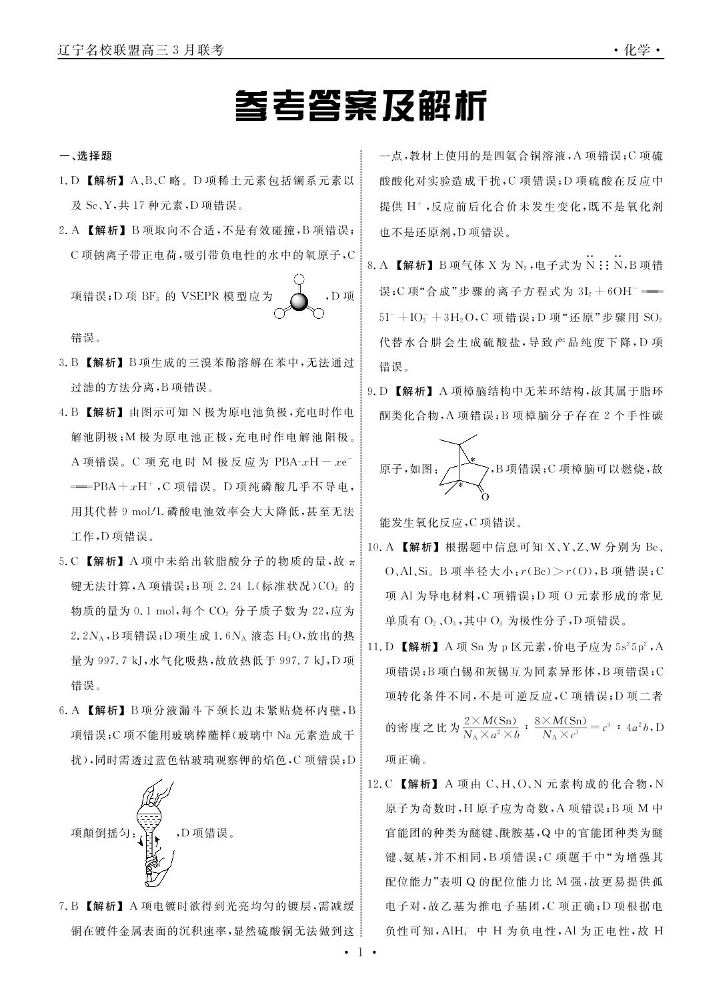 辽宁名校联盟高三3月联考
·化学·
参考答案及解析
一、选择题
1. D 【解析】A、B、C 略。D 项稀土元素包括镧系元素以
及 Sc、Y,共 17 种元素,D 项错误。
2. A 【解析】B 项取向不合适,不是有效碰撞,B 项错误;
C 项钠离子带正电荷,吸引带负电性的水中的氧原子,C
项错误;D 项 BF₃ 的 VSEPR 模型应为 ,D 项
错误。
3. B 【解析】B 项生成的三溴苯酚溶解在苯中,无法通过
过滤的方法分离,B 项错误。
4. B 【解析】由图示可知 N 极为原电池负极,充电时作电
解池阴极;M 极为原电池正极,充电时作电解池阳极。
A 项错误。C 项充电时 M 极反应为 PBA-xH－xe⁻
══PBA＋xH⁺,C 项错误。D 项纯磷酸几乎不导电,
用其代替 9 mol/L 磷酸电池效率会大大降低,甚至无法
工作,D 项错误。
5. C 【解析】A 项中未给出软脂酸分子的物质的量,故 π
键无法计算,A 项错误;B 项 2.24 L(标准状况)CO₂ 的
物质的量为 0.1 mol,每个 CO₂ 分子质子数为 22,应为
2.2Nₐ,B 项错误;D 项生成 1.6Nₐ 液态 H₂O,放出的热
量为 997.7 kJ,水气化吸热,故放热低于 997.7 kJ,D 项
错误。
6. A 【解析】B 项分液漏斗下颈长边未紧贴烧杯内壁,B
项错误;C 项不能用玻璃棒蘸样(玻璃中 Na 元素造成干
扰),同时需透过蓝色钴玻璃观察钾的焰色,C 项错误;D
项颠倒摇匀: ,D 项错误。
7. B 【解析】A 项电镀时欲得到光亮均匀的镀层,需减缓
铜在镀件金属表面的沉积速率,显然硫酸铜无法做到这
一点,教材上使用的是四氨合铜溶液,A 项错误;C 项硫
酸酸化对实验造成干扰,C 项错误;D 项硫酸在反应中
提供 H⁺,反应前后化合价未发生变化,既不是氧化剂
也不是还原剂,D 项错误。
8. A 【解析】B 项气体 X 为 N₂,电子式为 N̈⋮⋮N̈,B 项错
误;C 项“合成”步骤的离子方程式为 3I₂＋6OH⁻══
5I⁻＋IO₃⁻＋3H₂O,C 项错误;D 项“还原”步骤用 SO₂
代替水合肼会生成硫酸盐,导致产品纯度下降,D 项
错误。
9. D 【解析】A 项樟脑结构中无苯环结构,故其属于脂环
酮类化合物,A 项错误;B 项樟脑分子存在 2 个手性碳
原子,如图: * * O ,B 项错误;C 项樟脑可以燃烧,故
能发生氧化反应,C 项错误。
10. A 【解析】根据题中信息可知 X、Y、Z、W 分别为 Be、
O、Al、Si。B 项半径大小:r(Be)＞r(O),B 项错误;C
项 Al 为导电材料,C 项错误;D 项 O 元素形成的常见
单质有 O₂、O₃,其中 O₃ 为极性分子,D 项错误。
11. D 【解析】A 项 Sn 为 p 区元素,价电子应为 5s²5p²,A
项错误;B 项白锡和灰锡互为同素异形体,B 项错误;C
项转化条件不同,不是可逆反应,C 项错误;D 项二者
的密度之比为 2×M(Sn)/(Nₐ×a²×b) ∶ 8×M(Sn)/(Nₐ×c³) ＝c³∶4a²b,D
项正确。
12. C 【解析】A 项由 C、H、O、N 元素构成的化合物,N
原子为奇数时,H 原子应为奇数,A 项错误;B 项 M 中
官能团的种类为醚键、酰胺基,Q 中的官能团种类为醚
键、氨基,并不相同,B 项错误;C 项题干中“为增强其
配位能力”表明 Q 的配位能力比 M 强,故更易提供孤
电子对,故乙基为推电子基团,C 项正确;D 项根据电
负性可知,AlH₄⁻ 中 H 为负电性,Al 为正电性,故 H
·1·